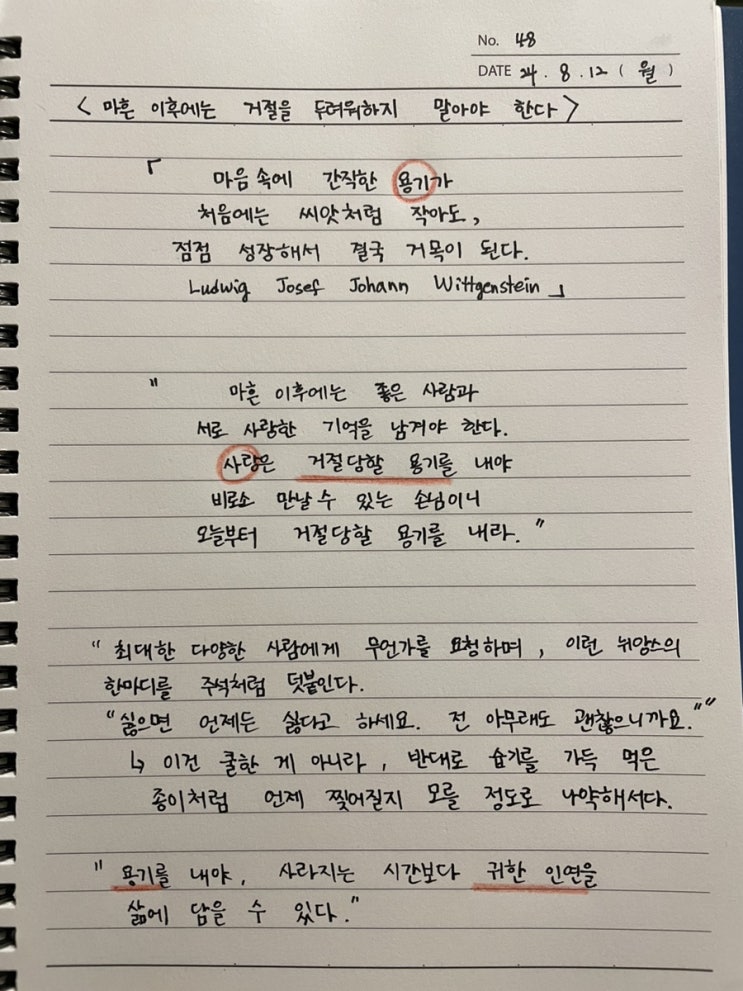 No. 48
DATE 24. 8. 12 ( 월 )
< 마흔 이후에는 거절을 두려워하지 말아야 한다 >
「 마음 속에 간직한 용기가
처음에는 씨앗처럼 작아도,
점점 성장해서 결국 거목이 된다.
Ludwig Josef Johann Wittgenstein 」
" 마흔 이후에는 좋은 사람과
서로 사랑한 기억을 남겨야 한다.
사랑은 거절당할 용기를 내야
비로소 만날 수 있는 손님이니
오늘부터 거절당할 용기를 내라. "
" 최대한 다양한 사람에게 무언가를 요청하며, 이런 뉘앙스의
한마디를 주석처럼 덧붙인다.
"싫으면 언제든 싫다고 하세요. 전 아무래도 괜찮으니까요.""
↳ 이건 쿨한 게 아니라, 반대로 습기를 가득 먹은
종이처럼 언제 찢어질지 모를 정도로 나약해서다.
" 용기를 내야, 사라지는 시간보다 귀한 인연을
삶에 담을 수 있다."